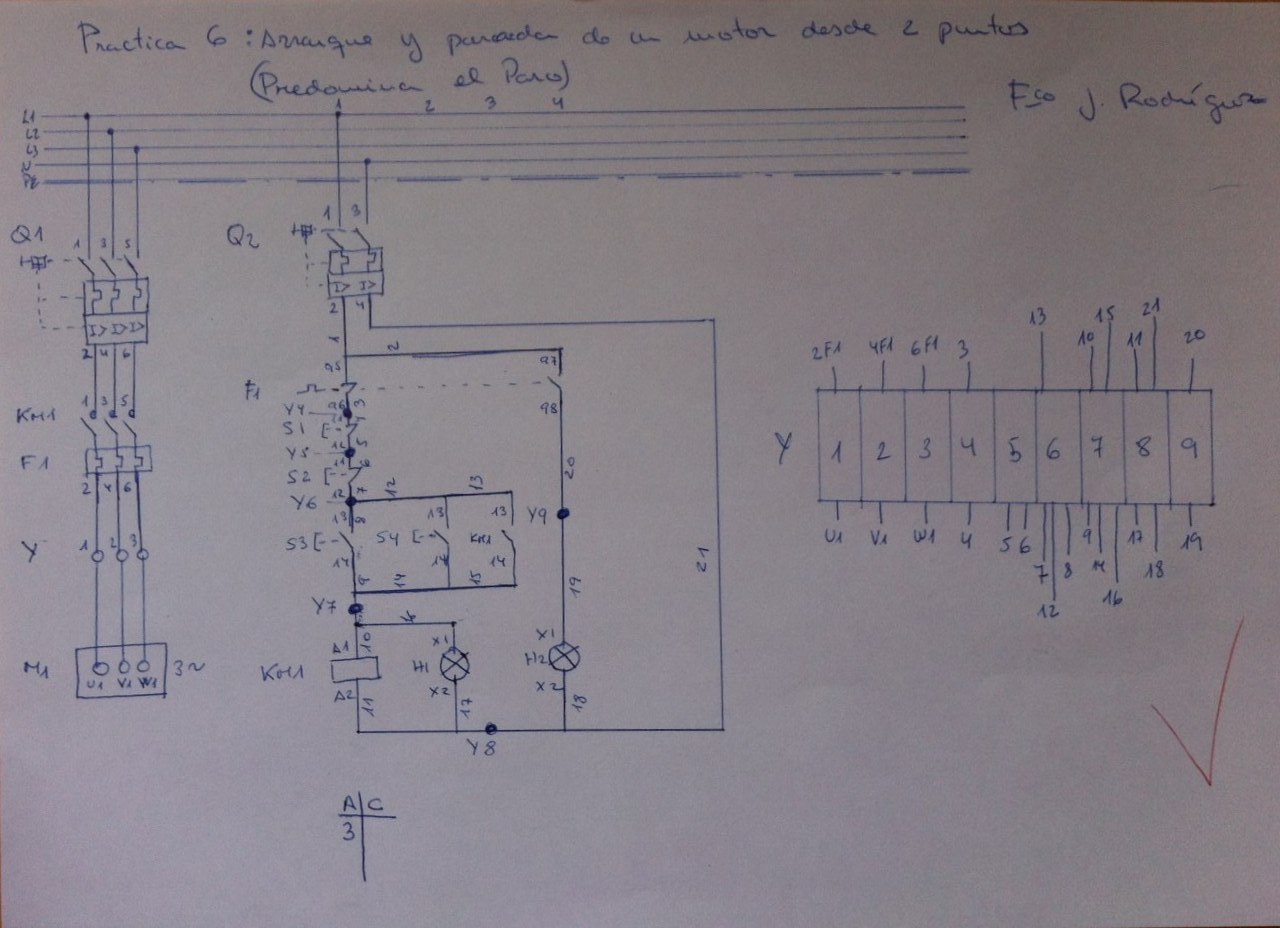 Practica 6: Arranque y parada de un motor desde 2 puntos
(Predomina el Paro)
Fco J. Rodríguez
1 2 3 4
L1
L2
L3
N
PE
Q1 1 3 5
Q2 1 3
I> I> I>
I> I>
2 4 6
2 4
1 2
21
KM1 1 3 5
F1
2 4 6
F1 95 97
96 98
Y4 3
S1 11 4
Y5 12 5
S2 11 6
Y6 12 7
12 13
S3 13 8
14
S4 13
14
KM1 13
14
9 14 15
Y7
Y9 20
19
Y 1 2 3
M1 U1 V1 W1 3~
KM1 A1 10
A2 11
H1 X1
X2 17
H2 X1
X2 18
Y8
A C
3
2F1 4F1 6F1 3 13 10 15 11 21 20
Y 1 2 3 4 5 6 7 8 9
U1 V1 W1 4 5 6 7 12 8 9 14 16 17 18 19